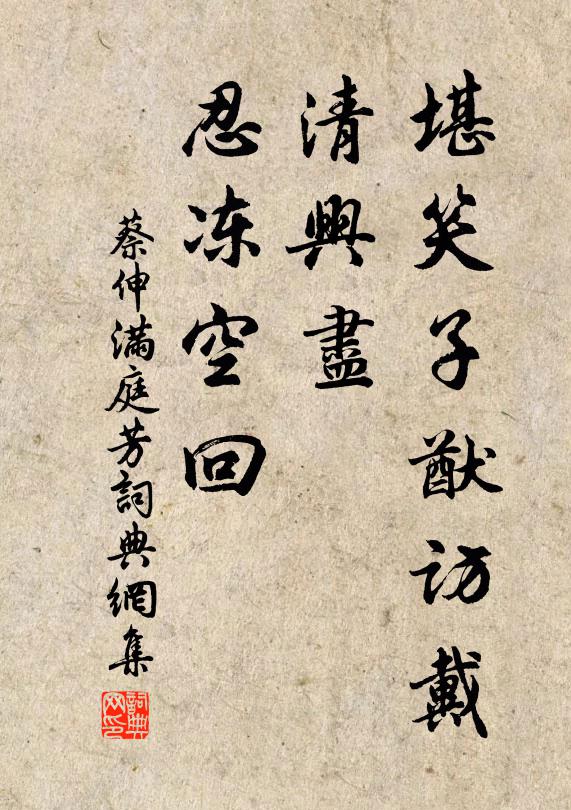 堪笑子猷访戴
清興盡
忍冻空回
蔡伸滿庭芳詞典網集
詞典网印